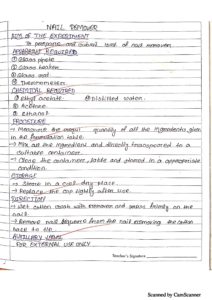 NAIL REMOVER
AIM OF THE EXPERIMENT
To prepare and submit of nail remover.
APPARATUS REQUIRED
① Glass plate
② Glass beaker
③ Glass rod
④ Thermometer
CHEMICAL REQUIRED
① Ethyl acetate ④ Distilled water.
② Acetone
③ Ethanol
PROCEDURE
→ Measure the quantity of all the ingredients given
in the formulation table.
→ Mix all the ingredient and directly transferred to a
suitable container.
→ Close the container, lable and placed in a appropriate
condition.
STORAGE
→ Store in a cool dry place.
→ Replace the cap tightly after use.
DIRECTION
→ Wet cotton with remover and press firmly on the
nail.
→ Remove nail from the nail the cotton
to tip.
AUXILIARY LABEL
FOR EXTERNAL USE ONLY
Teacher's Signature
Scanned by CamScanner